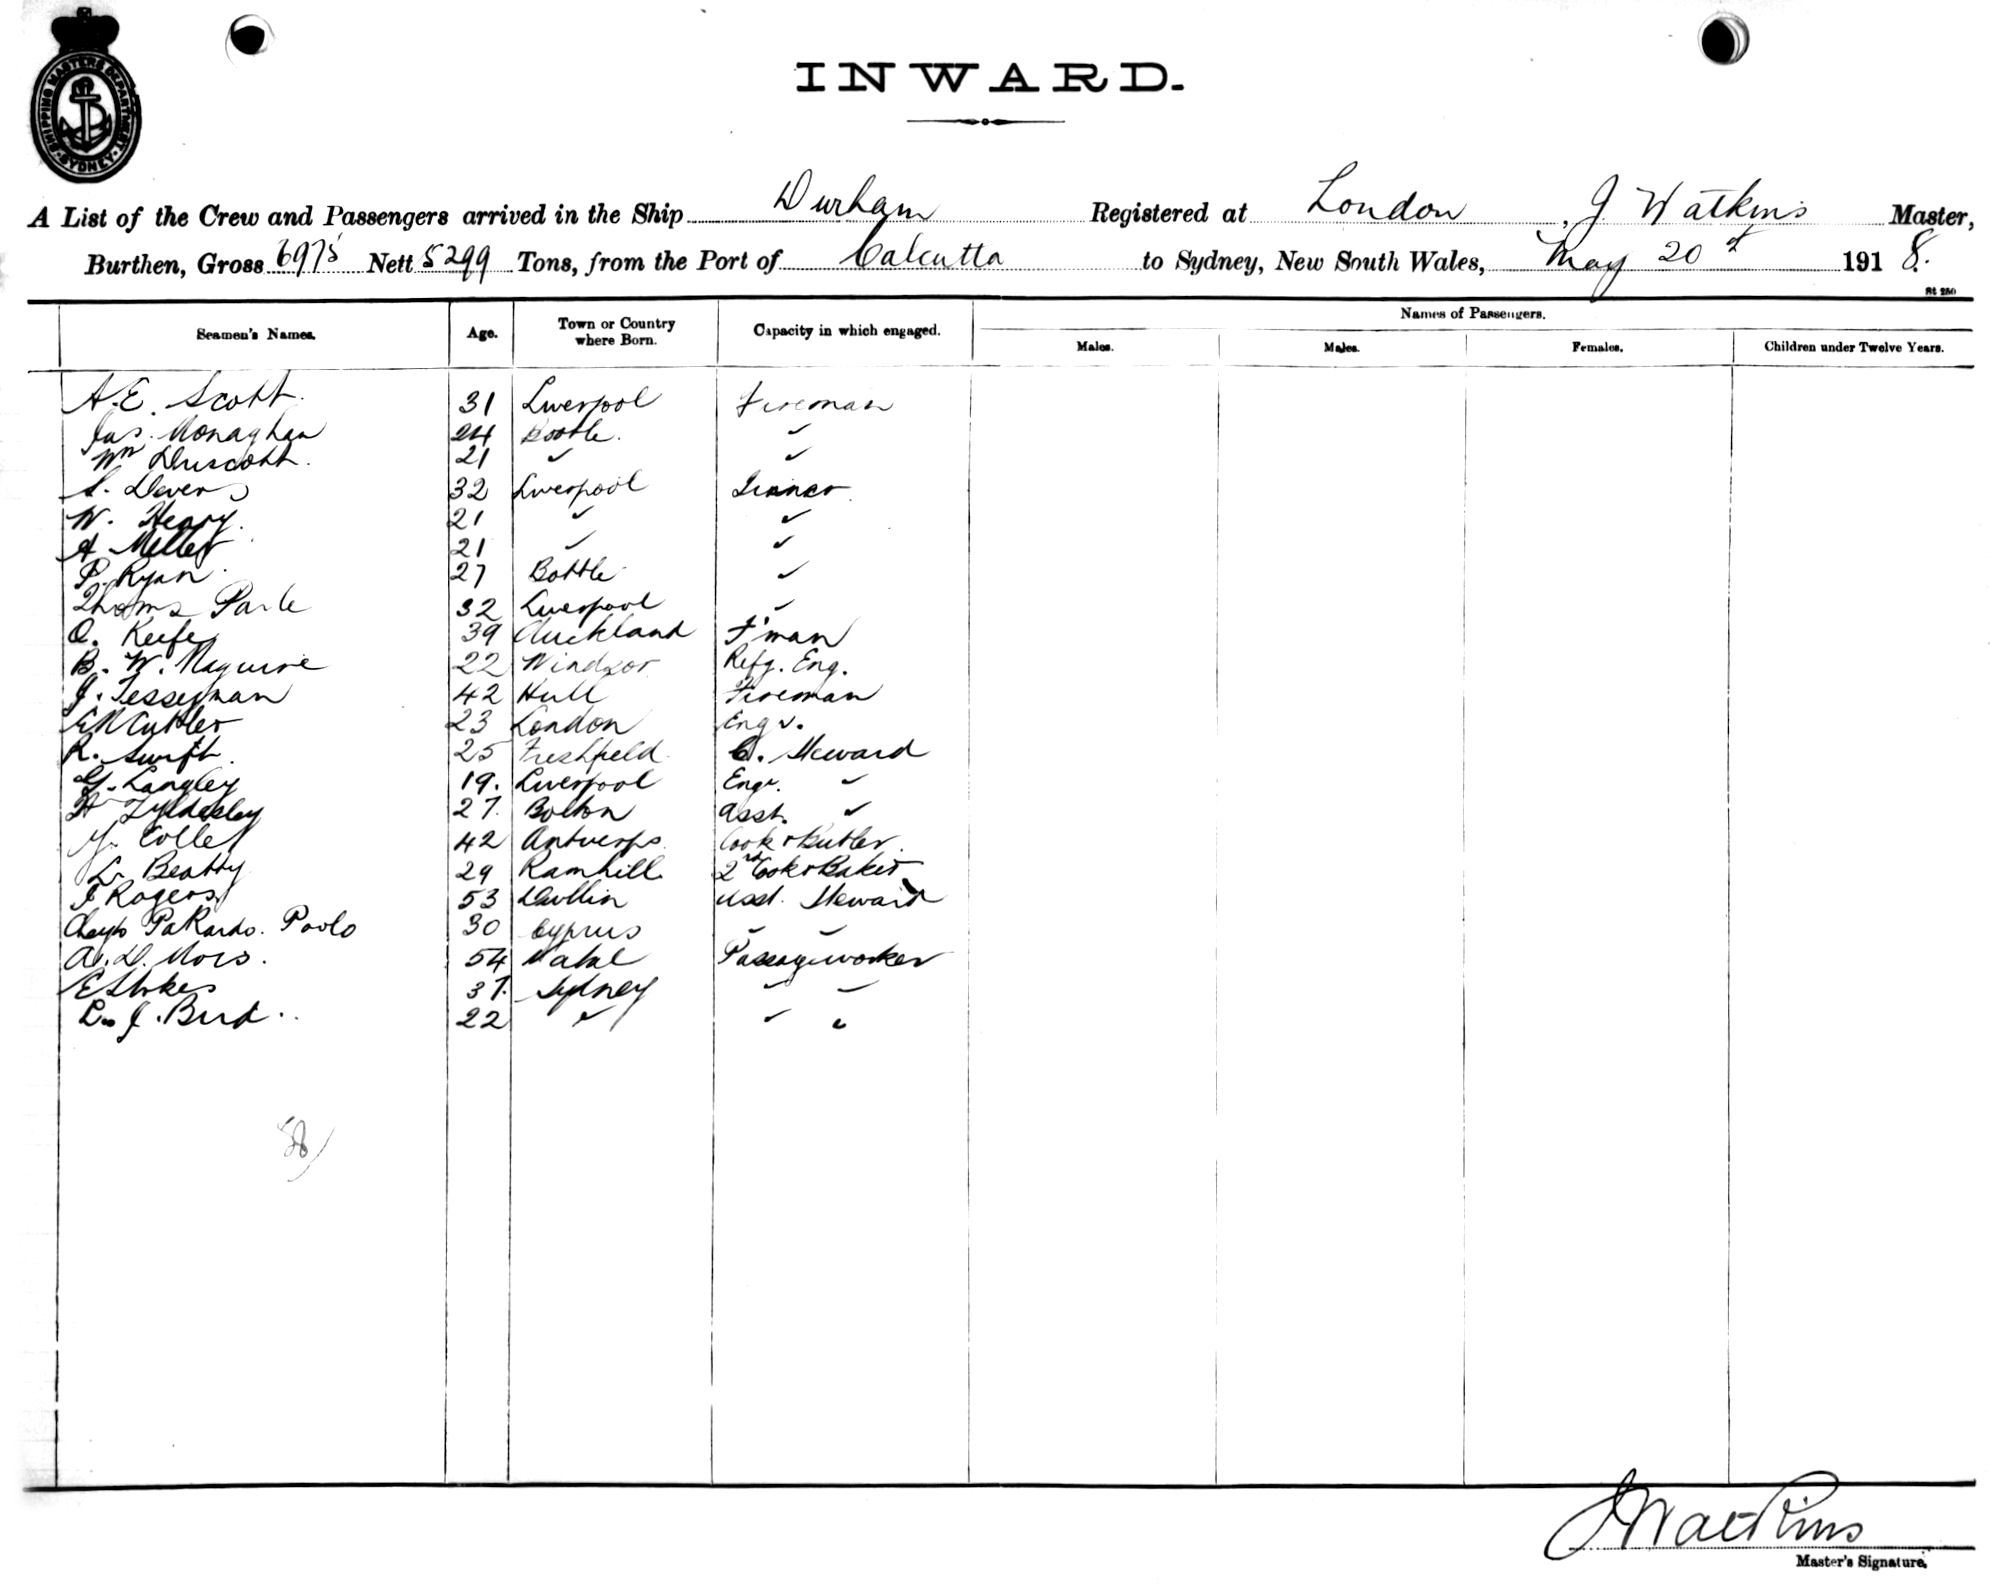 SHIPPING MASTERS DEPARTMENT SYDNEY
INWARD.
A List of the Crew and Passengers arrived in the Ship Durham Registered at London, J Watkins Master,
Burthen, Gross 6975 Nett 5299 Tons, from the Port of Calcutta to Sydney, New South Wales, May 20 1918.
Names of Passengers.
Seamen's Names. Age. Town or Country where Born. Capacity in which engaged. Males. Males. Females. Children under Twelve Years.
A. E. Scott. 31 Liverpool Fireman
Jas. Monaghan 24 Bootle. ✓
Wm Driscoll. 21 ✓ ✓
S. Devers 32 Liverpool
W. Henry. 21 ✓ ✓
A Miller 21 ✓ ✓
P. Ryan 27 Bottle ✓
Thoms Parle 32 Liverpool ✓
O. Keefe 39 Auckland F'man
B. W. Maguire 22 Windsor Refg. Eng.
J. Tesseyman 42 Hull Fireman
Cuttler 23 London Engr.
R. Swift. 25 Freshfield C. Steward
G. Langley 19. Liverpool Engr. ✓
H Tyldesley 27. Bolton Asst. ✓
Colle 42 Antwerps Cook & Butler.
L. Beatty 29 Rainhill 2nd Cook & Baker
F Rogers 53 Dublin Asst. Steward
Paolo 30 Cyprus
A. D. Mors. 54 Natal Passageworker
E Stokes 37. Sydney
L. J. Bird. 22 ✓
58
J Watkins
Master's Signature.